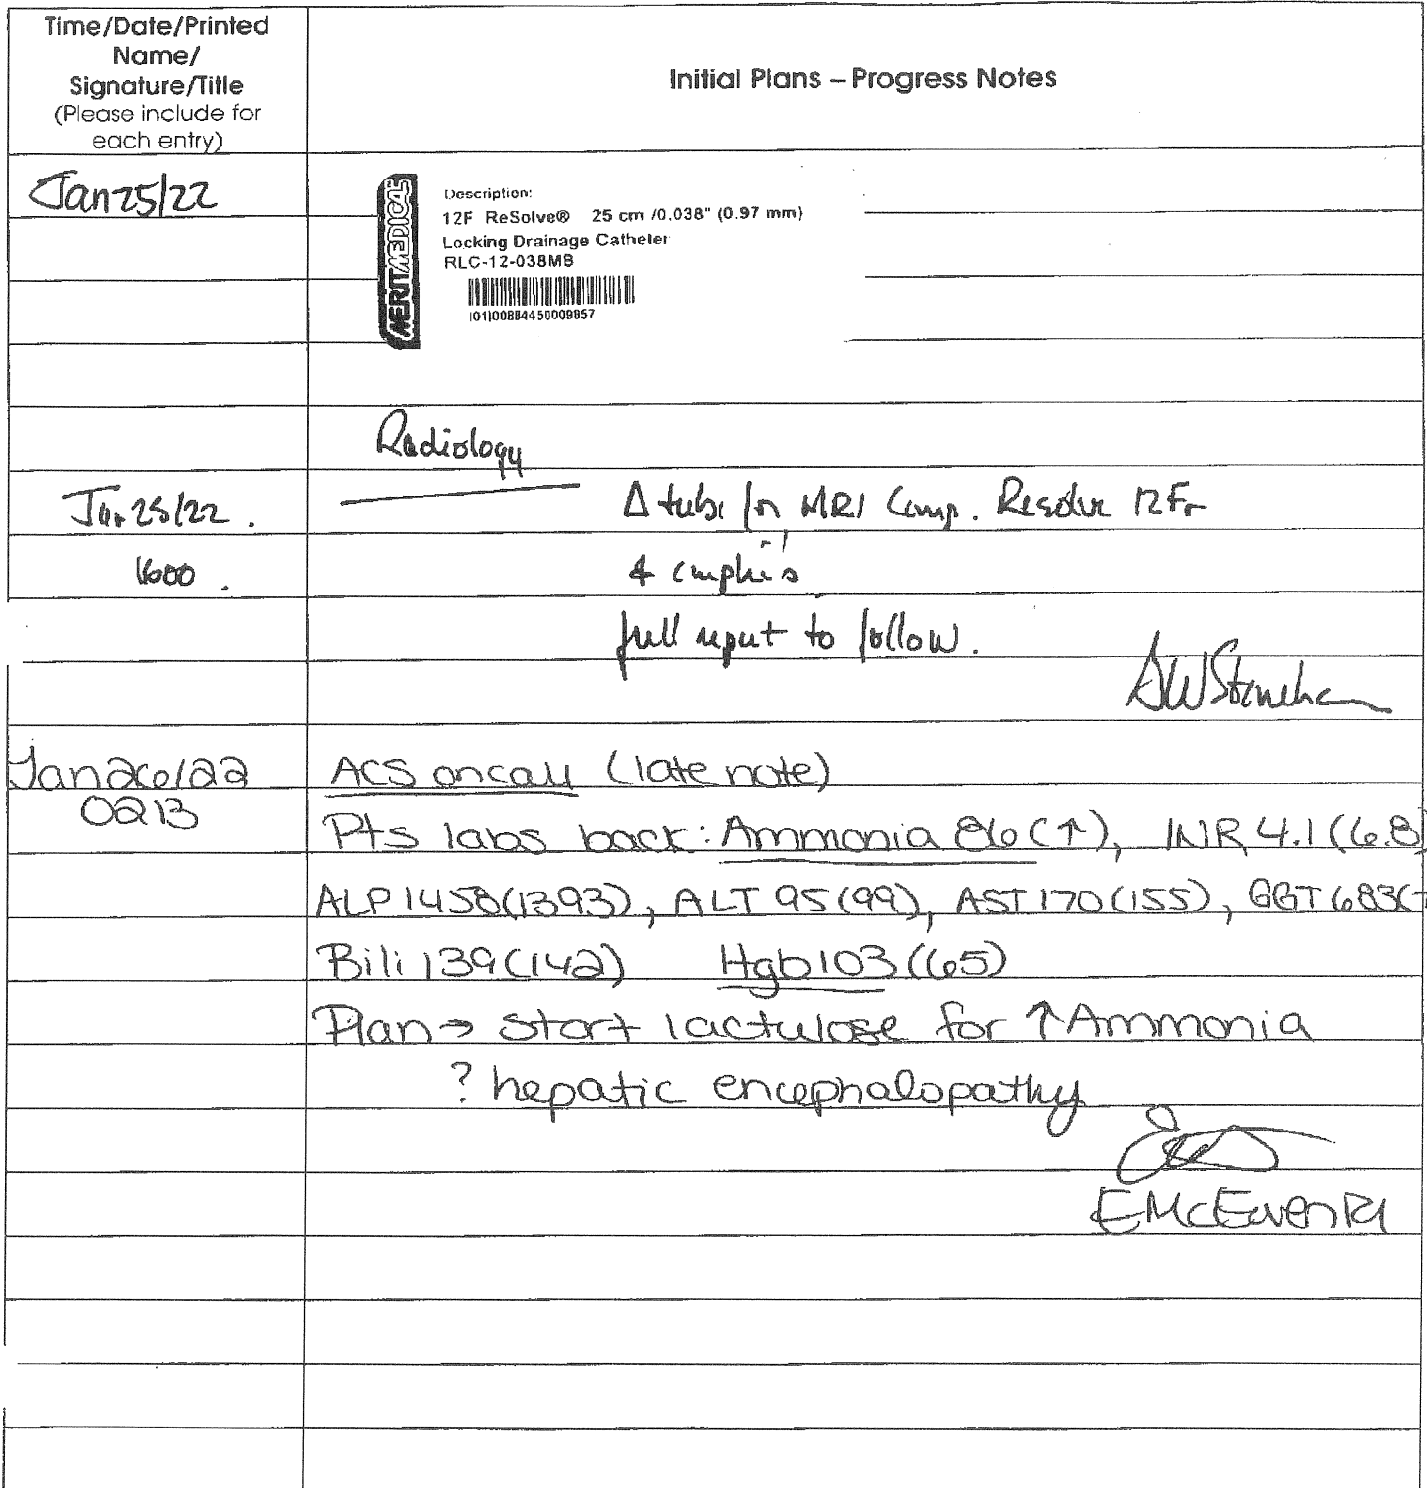 Time/Date/Printed
Name/
Signature/Title
(Please include for
each entry)
Initial Plans – Progress Notes
Jan 25/22
MERITMEDICAL
Description:
12F ReSolve® 25 cm /0.038" (0.97 mm)
Locking Drainage Catheter
RLC-12-038MB
(01)00884450009857
Radiology
Jan 25/22.
Δ tube for MRI Comp. Resolve 12Fr
1600.
full report to follow.
Jan 26/22
ACS oncall (late note)
0213
Pts labs back: Ammonia 86(↑), INR 4.1(6.8)
ALP 1458(1393), ALT 95(99), AST 170(155), GGT 683(
Bili 139(142) Hgb 103(65)
Plan → start lactulose for ↑Ammonia
? hepatic encephalopathy
EMcEwen R1